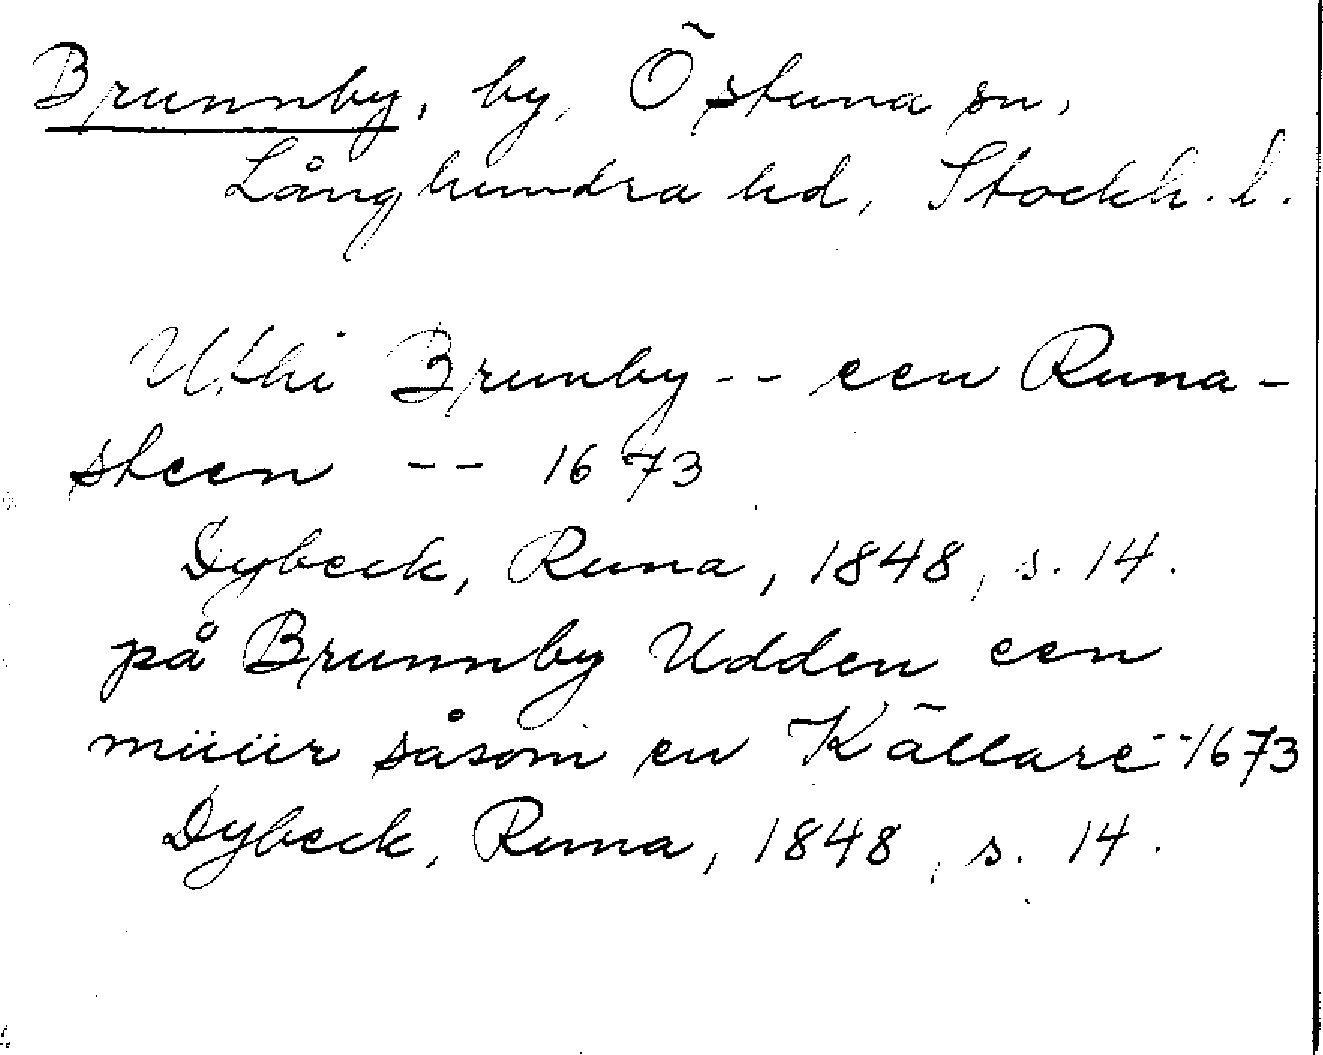 Brunnby, by, Östuna sn,
Långhundra hd, Stockh. l.
Uthi Brunby -- een Runa-
steen -- 1673
Dybeck, Runa, 1848, s. 14.
på Brunnby Udden een
müür såsom en Källare -- 1673
Dybeck, Runa, 1848, s. 14.